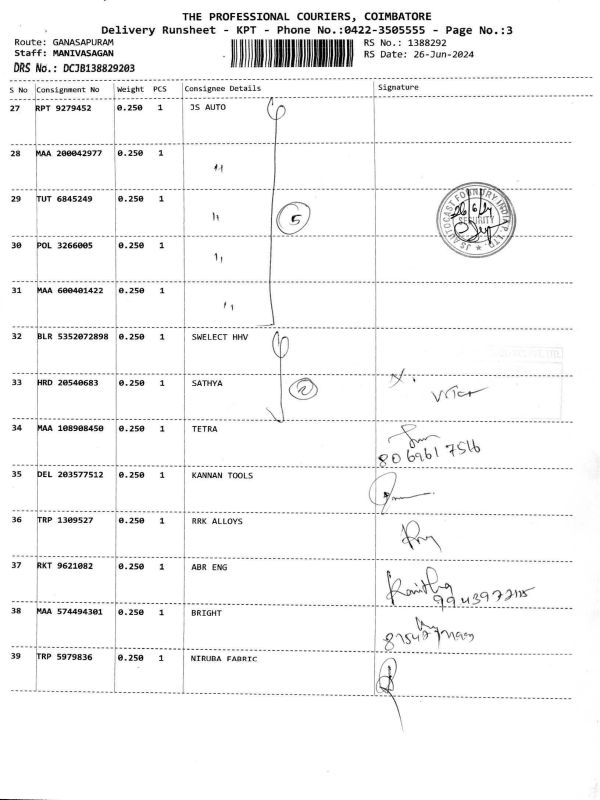 THE PROFESSIONAL COURIERS, COIMBATORE
Delivery Runsheet - KPT - Phone No.:0422-3505555 - Page No.:3
Route: GANASAPURAM RS No.: 1388292
Staff: MANIVASAGAN RS Date: 26-Jun-2024
DRS No.: DCJB138829203
S No Consignment No Weight PCS Consignee Details Signature
27 RPT 9279452 0.250 1 JS AUTO
28 MAA 200042977 0.250 1 〃
29 TUT 6845249 0.250 1 〃
5
JS AUTOCAST FOUNDRY INDIA P. LTD.
26/6/24
SECURITY
30 POL 3266005 0.250 1 〃
31 MAA 600401422 0.250 1 〃
32 BLR 5352072898 0.250 1 SWELECT HHV
33 HRD 20540683 0.250 1 SATHYA
2
34 MAA 108908450 0.250 1 TETRA
35 DEL 203577512 0.250 1 KANNAN TOOLS
36 TRP 1309527 0.250 1 RRK ALLOYS
37 RKT 9621082 0.250 1 ABR ENG
38 MAA 574494301 0.250 1 BRIGHT
39 TRP 5979836 0.250 1 NIRUBA FABRIC